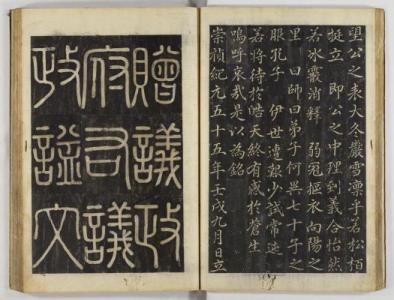 望公之表大冬嚴雪凜乎若松栢
挺立 即公之中理到義合怡然
若氷霰消釋 弱冠摳衣向陽之
里 曰師曰弟子何異七十子之
服孔子 伊世遭艱少試常迍
若將待於皓天終有慼於蒼生
嗚呼哀哉是以為銘
崇禎紀元五十五年壬戌九月日立
贈議政
府右議
政謚文